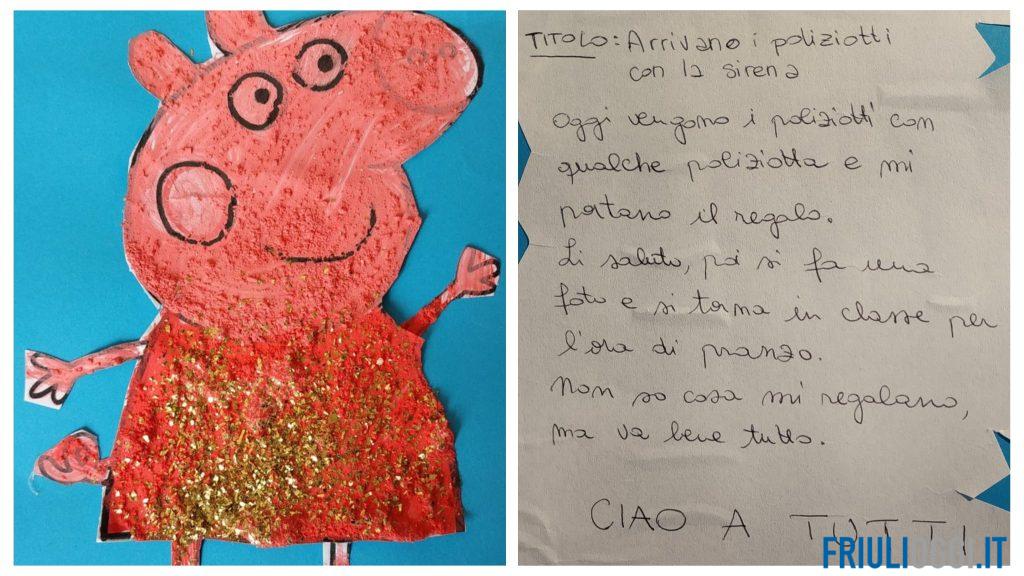 TITOLO: Arrivano i poliziotti
con la sirena
oggi vengono i poliziotti con
qualche poliziotta e mi
portano il regalo.
Li saluto, poi si fa una
foto e si torna in classe per
l'ora di pranzo.
Non so cosa mi regalano,
ma va bene tutto.
CIAO A TUTTI
FRIULIOGGI.IT